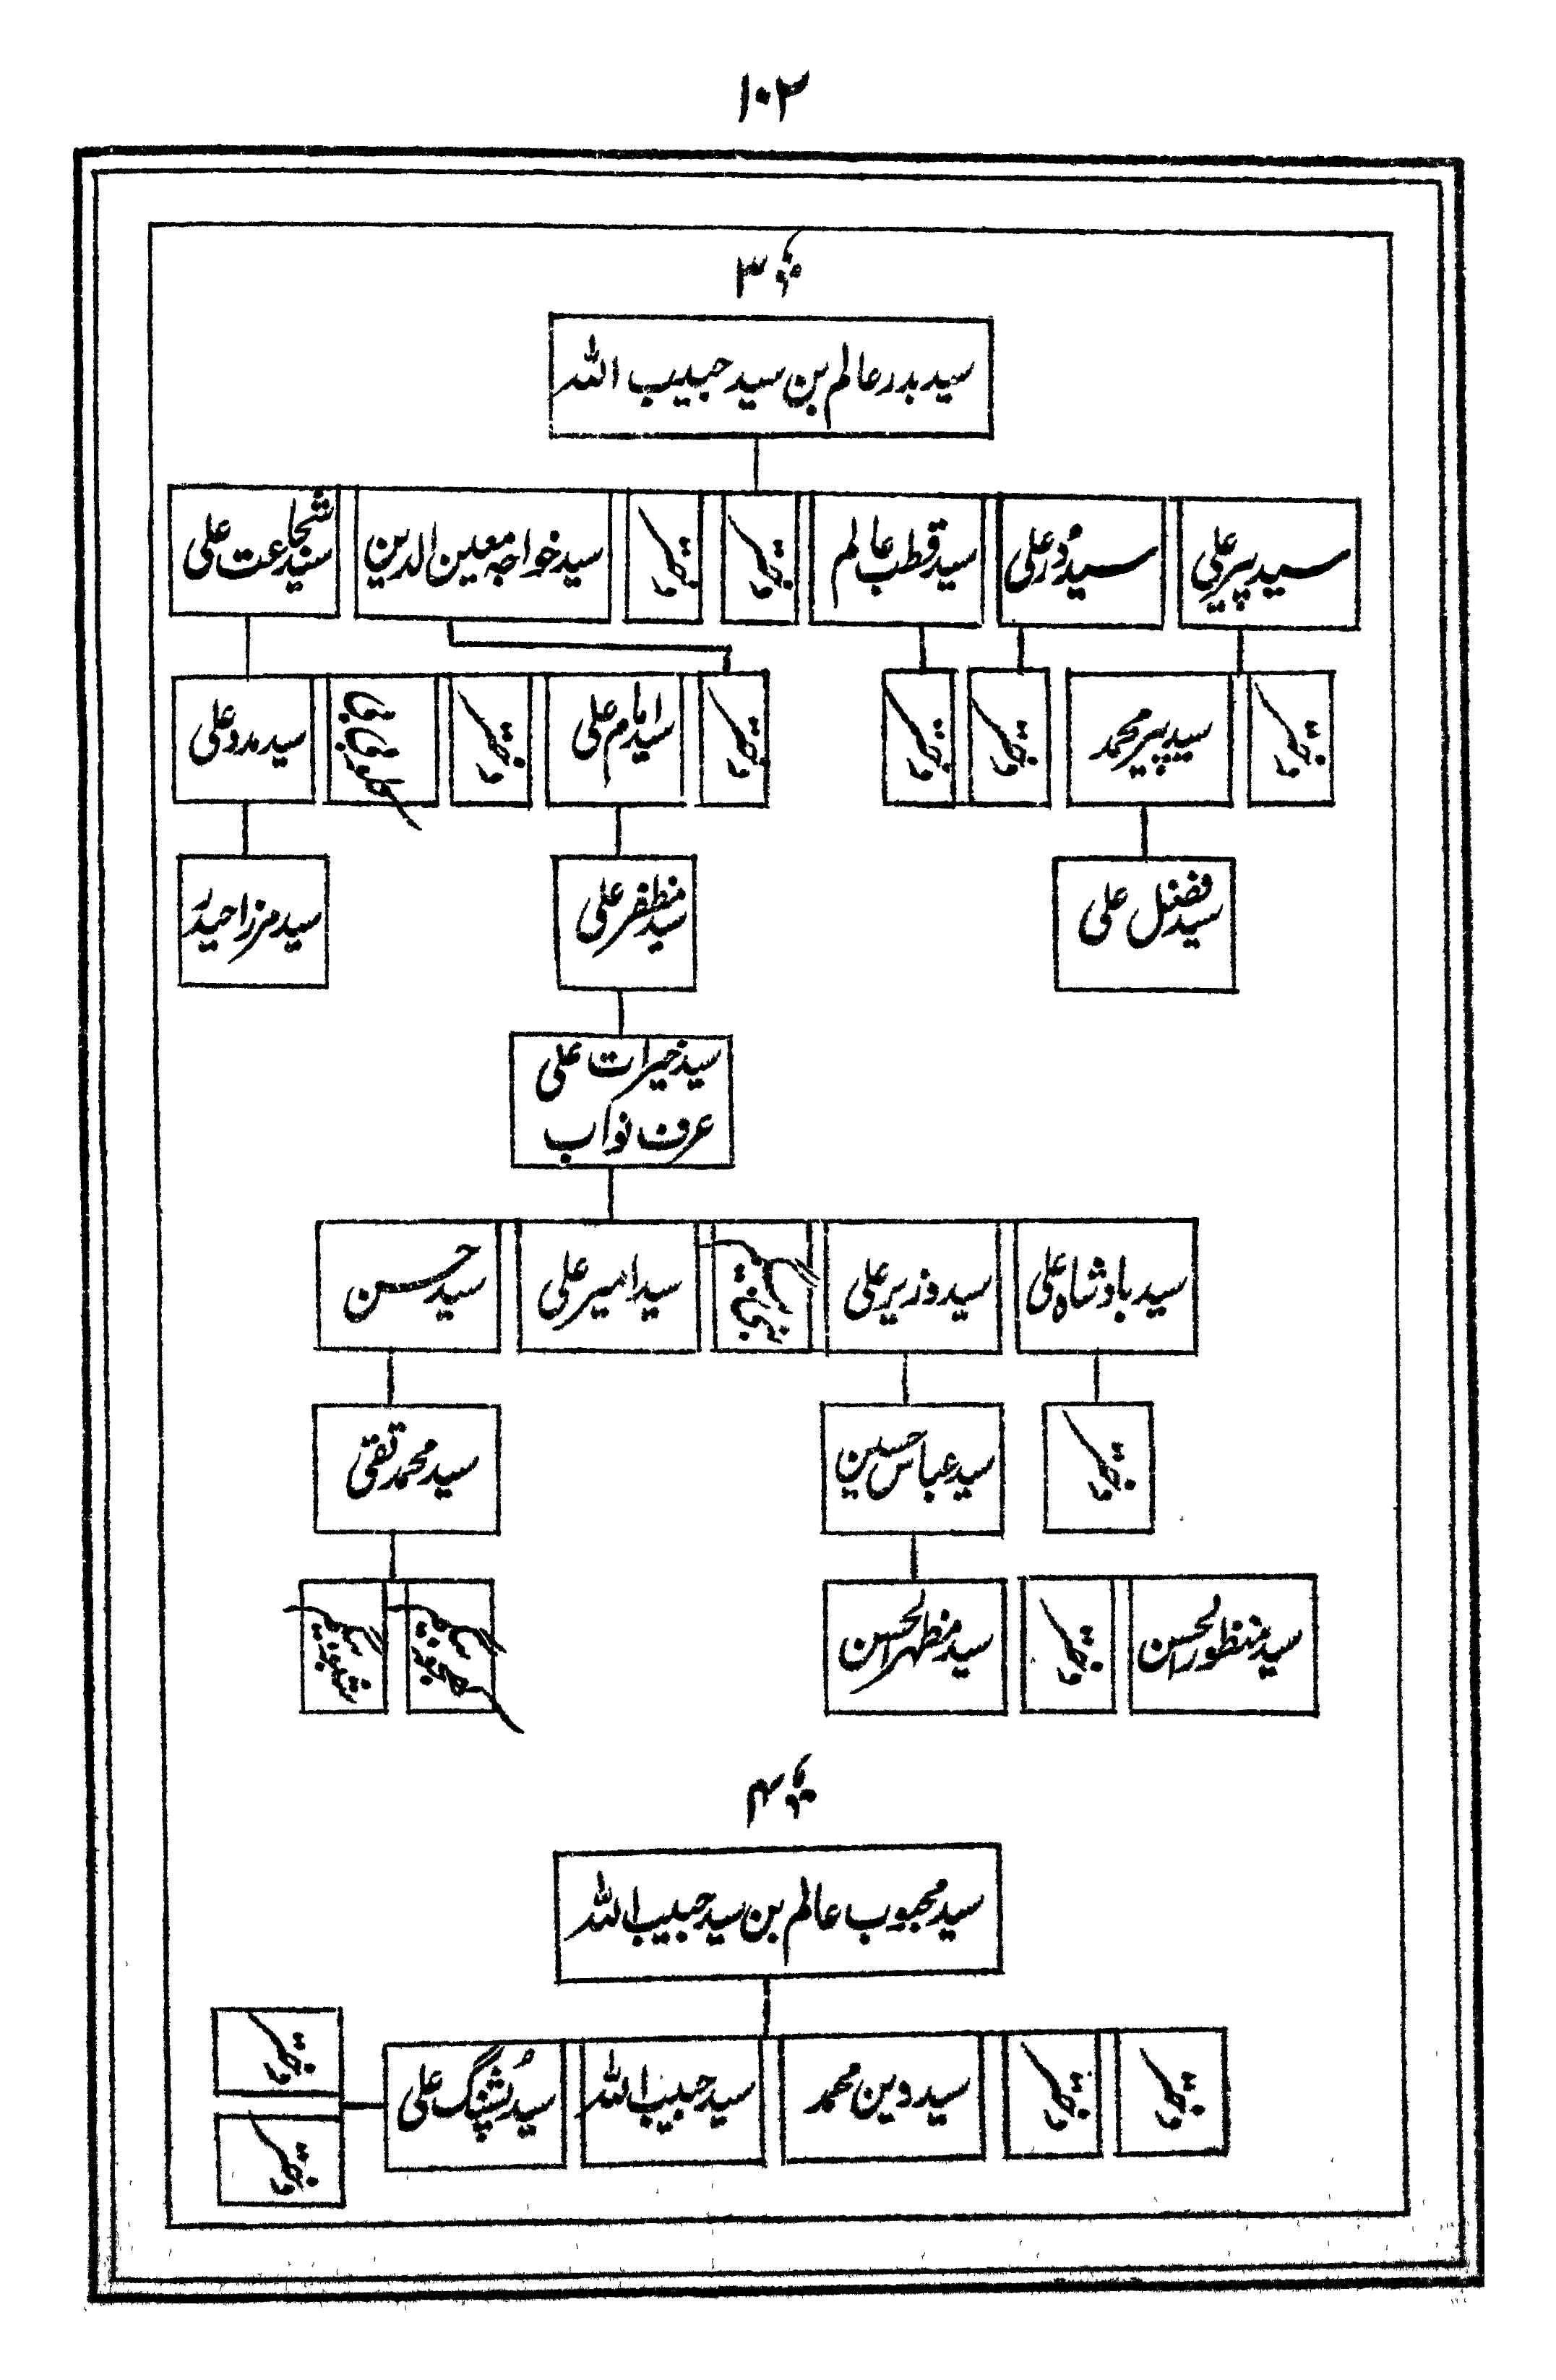 ۱۰۳
نمبر ۳
سید بدر عالم بن سید حبیب اللہ
سید پیر علی
سید دُر علی
سید قطب عالم
دختر
دختر
سید خواجہ معین الدین
سید شجاعت علی
دختر
سید پیر محمد
دختر
دختر
دختر
سید امام علی
دختر
سید مدد علی
سید فضل علی
سید مظفر علی
سید مرزا حیدر
سید خیرات علی
عرف نواب
سید بادشاہ علی
سید وزیر علی
سید امیر علی
سید حسن
دختر
سید عباس حسین
سید محمد تقی
سید منظور الحسن
دختر
سید مظہر الحسن
نمبر ۴
سید محبوب عالم بن سید حبیب اللہ
دختر
دختر
سید دین محمد
سید حبیب اللہ
سید پُشپنگ علی
دختر
دختر